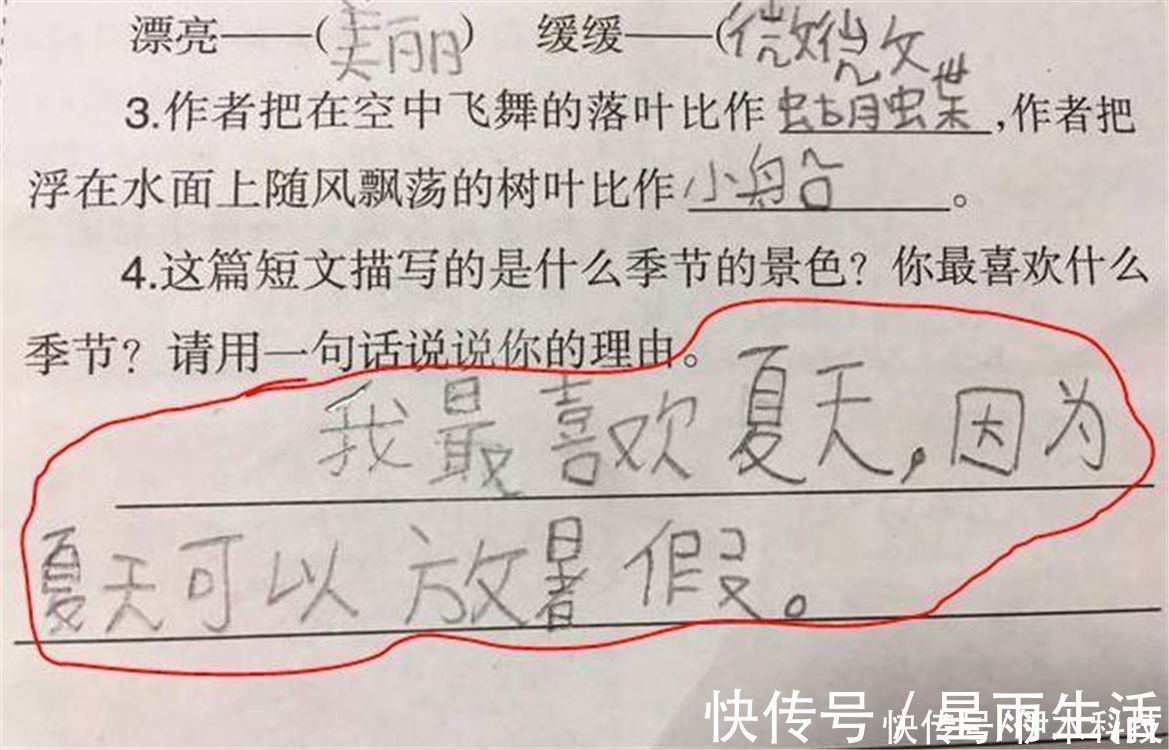 漂亮——(美丽) 缓缓——(微微)
3.作者把在空中飞舞的落叶比作蝴蝶,作者把
浮在水面上随风飘荡的树叶比作小船。
4.这篇短文描写的是什么季节的景色?你最喜欢什么
季节?请用一句话说说你的理由。
我最喜欢夏天,因为
夏天可以放暑假。
快传号/星雨生活
快传号/伊木科技